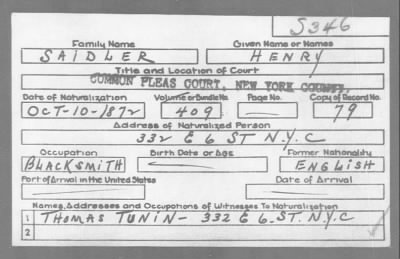 S346
Family Name Given Name or Names
SAIDLER HENRY
Title and Location of Court
COMMON PLEAS COURT, NEW YORK COUNTY.
Date of Naturalization Volume or Bundle No. Page No. Copy of Record No.
OCT-10-1872 409 79
Address of Naturalized Person
332 E 6 ST N.Y.C
Occupation Birth Date or Age Former Nationality
BLACKSMITH ENGLISH
Port of Arrival in the United States Date of Arrival
Names, Addresses and Occupations of Witnesses To Naturalization
1 THOMAS TUNIN- 332 E 6. ST. N.Y.C
2